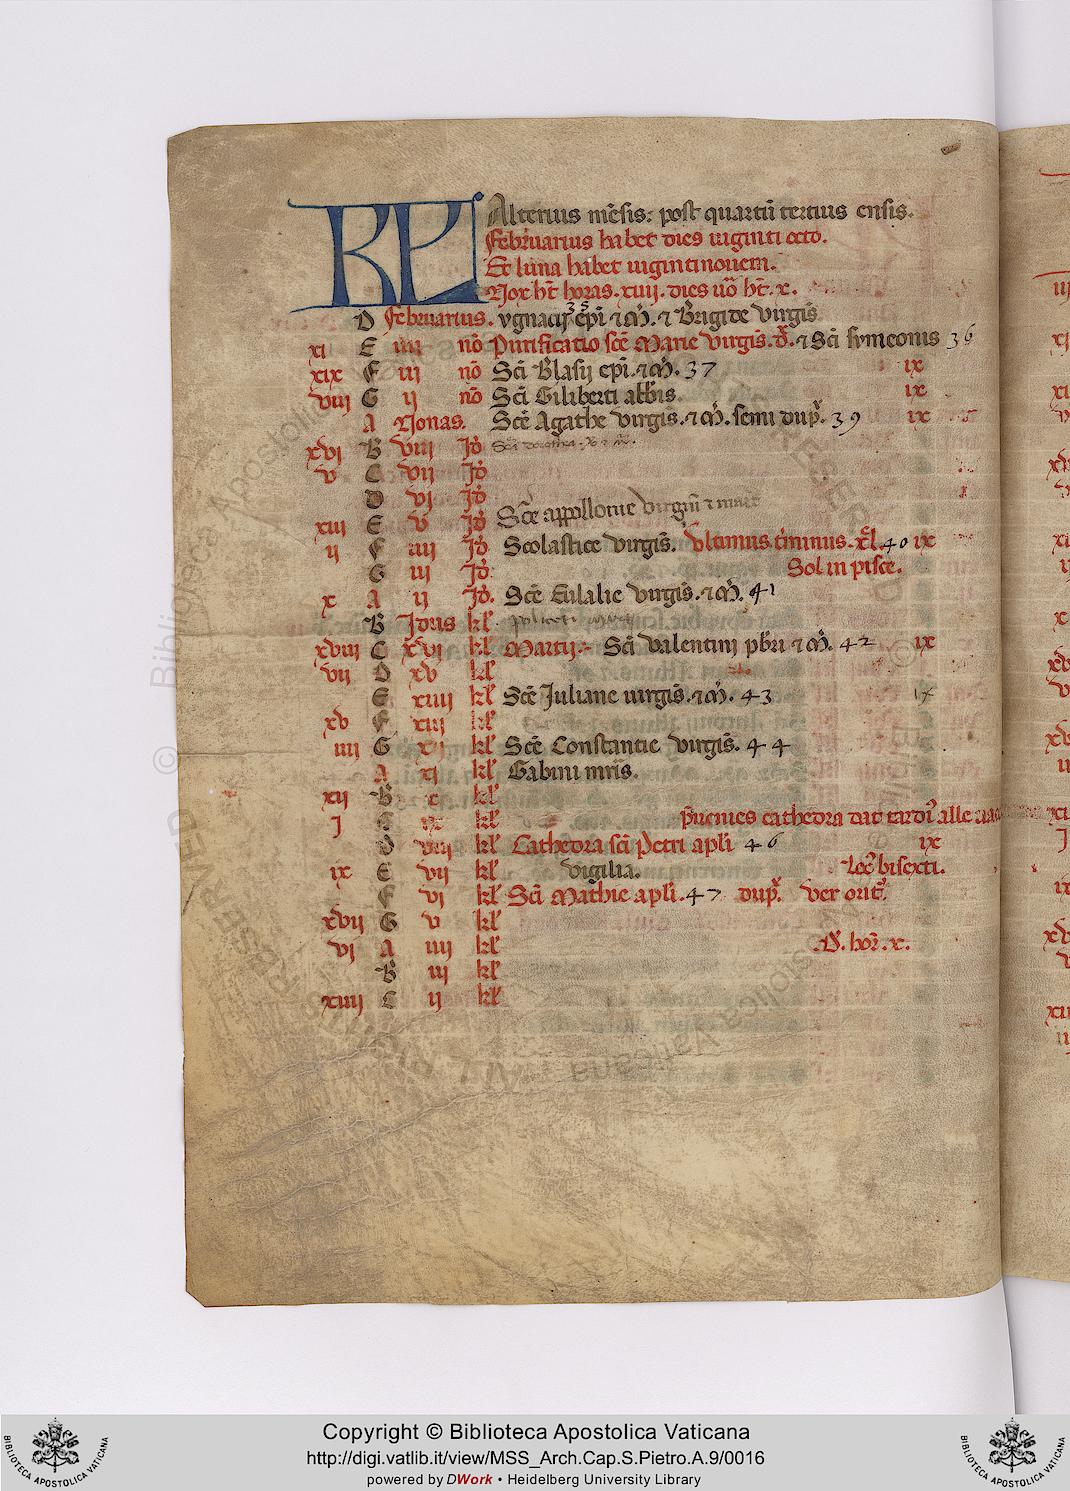 KL Alterius mēsis: post quartū tertius ensis.
Februarius habet dies uiginti octo.
Et luna habet uigintinouem.
Nox hƀt horas. xiiij. dies uō hƀt. x.
D Februarius. ygnacij ep̄i ⁊ M̄. ⁊ Brigide virgis̄
xi E iiij nō Purificatio sc̄e Marie virgis̄. ⁊ Sc̄i symeonis 36
xix F iij nō Sc̄i Blasij ep̄i. ⁊ M̄. 37 ix
viij G ij nō Sc̄i Giliberti abb̄is. ix
A Nonas. Sc̄e Agathe virgis̄. ⁊ M̄. semi dup̄. 39 ix
xvj B viij Jd̄
v C vij Jd̄
D vj Jd̄
xiij E v Jd̄ Sc̄e appollonie virginis ⁊ mart
ij F iiij Jd̄ Scolastice virgis̄. Vltimus t̄minus. xl. 40 ix
G iij Jd̄ Sol in pisce.
x A ij Jd̄. Sc̄e Eulalie virgis̄. ⁊ M̄. 41
B Jdus kl̄
xviij C xvj kl̄ Martij. Sc̄i Valentini pb̄ri ⁊ M̄. 42 ix
vij D xv kl̄
E xiiij kl̄ Sc̄e Juliane uirgis̄. ⁊ M̄. 43 ix
xv F xiij kl̄
iiij G xij kl̄ Sc̄e Constancie virgis̄. 44
A xj kl̄ Gabini mr̄is.
xij B x kl̄
j C ix kl̄ cathedra dat tardr̄ alle
D viij kl̄ Cathedra sc̄i Petri apl̄i 46 ix
ix E vij kl̄ vigilia. Loc̄ bisexti.
F vj kl̄ Sc̄i Mathie apl̄i. 47 dup̄. ver orit̄.
xvij G v kl̄
vj A iiij kl̄ D. hor̄. x.
B iij kl̄
xiiij C ij kl̄
Copyright © Biblioteca Apostolica Vaticana
http://digi.vatlib.it/view/MSS_Arch.Cap.S.Pietro.A.9/0016
powered by DWork • Heidelberg University Library
BIBLIOTECA APOSTOLICA VATICANA
BIBLIOTECA APOSTOLICA VATICANA